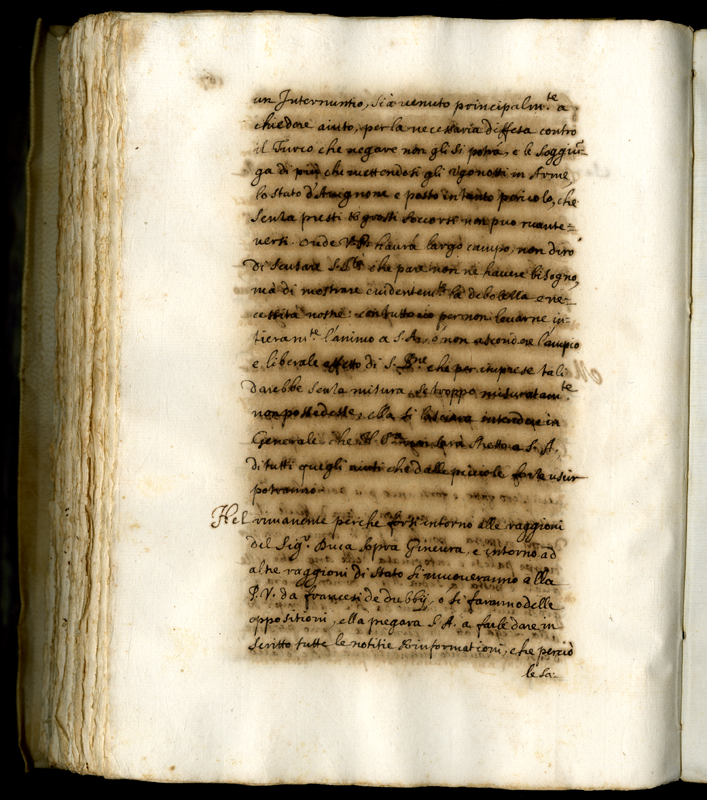 un Internuntio, si è venuto principalm.te a
chiedere aiuto, per la necessaria diffesa contro
il Turco che negare non gli si potrà, e le soggiu=
ga di più che mettendosi gli Ugonotti in Arme,
lo stato d'Avignone e posto in tanto pericolo, che
senza presti et grossi soccorsi non può mante=
nersi. Onde V.P. haurà largo campo, non dirò
di scusare S. B.ne che pare non ne havere bisogno,
mà di mostrare evidentem.te la debolezza e ne=
cessità nostre: con tutto ciò per non levarne in=
tieram.te l'animo a S.A., ò non ascondere l'ampio
e liberale affetto di S. B.ne che per imprese tali
darebbe senza misura, se troppo misuratam.te
non possedesse, ella si lasciara intendere in
Generale che N. S.re non sarà stretto a S. A.
di tutti quegli aiuti che dalle piccole forze usur
potranno
Nel rimanente perche forsi intorno alle raggioni
del Sig.r Duca sopra Ginevra, e intorno ad
altre raggioni di stato si muoveranno alla
P.V. da francesi de dubbij, o si faranno delle
oppositioni, ella pregara S.A. a farle dare in
scritto tutte le notitie et informationi, che perciò
le sa: